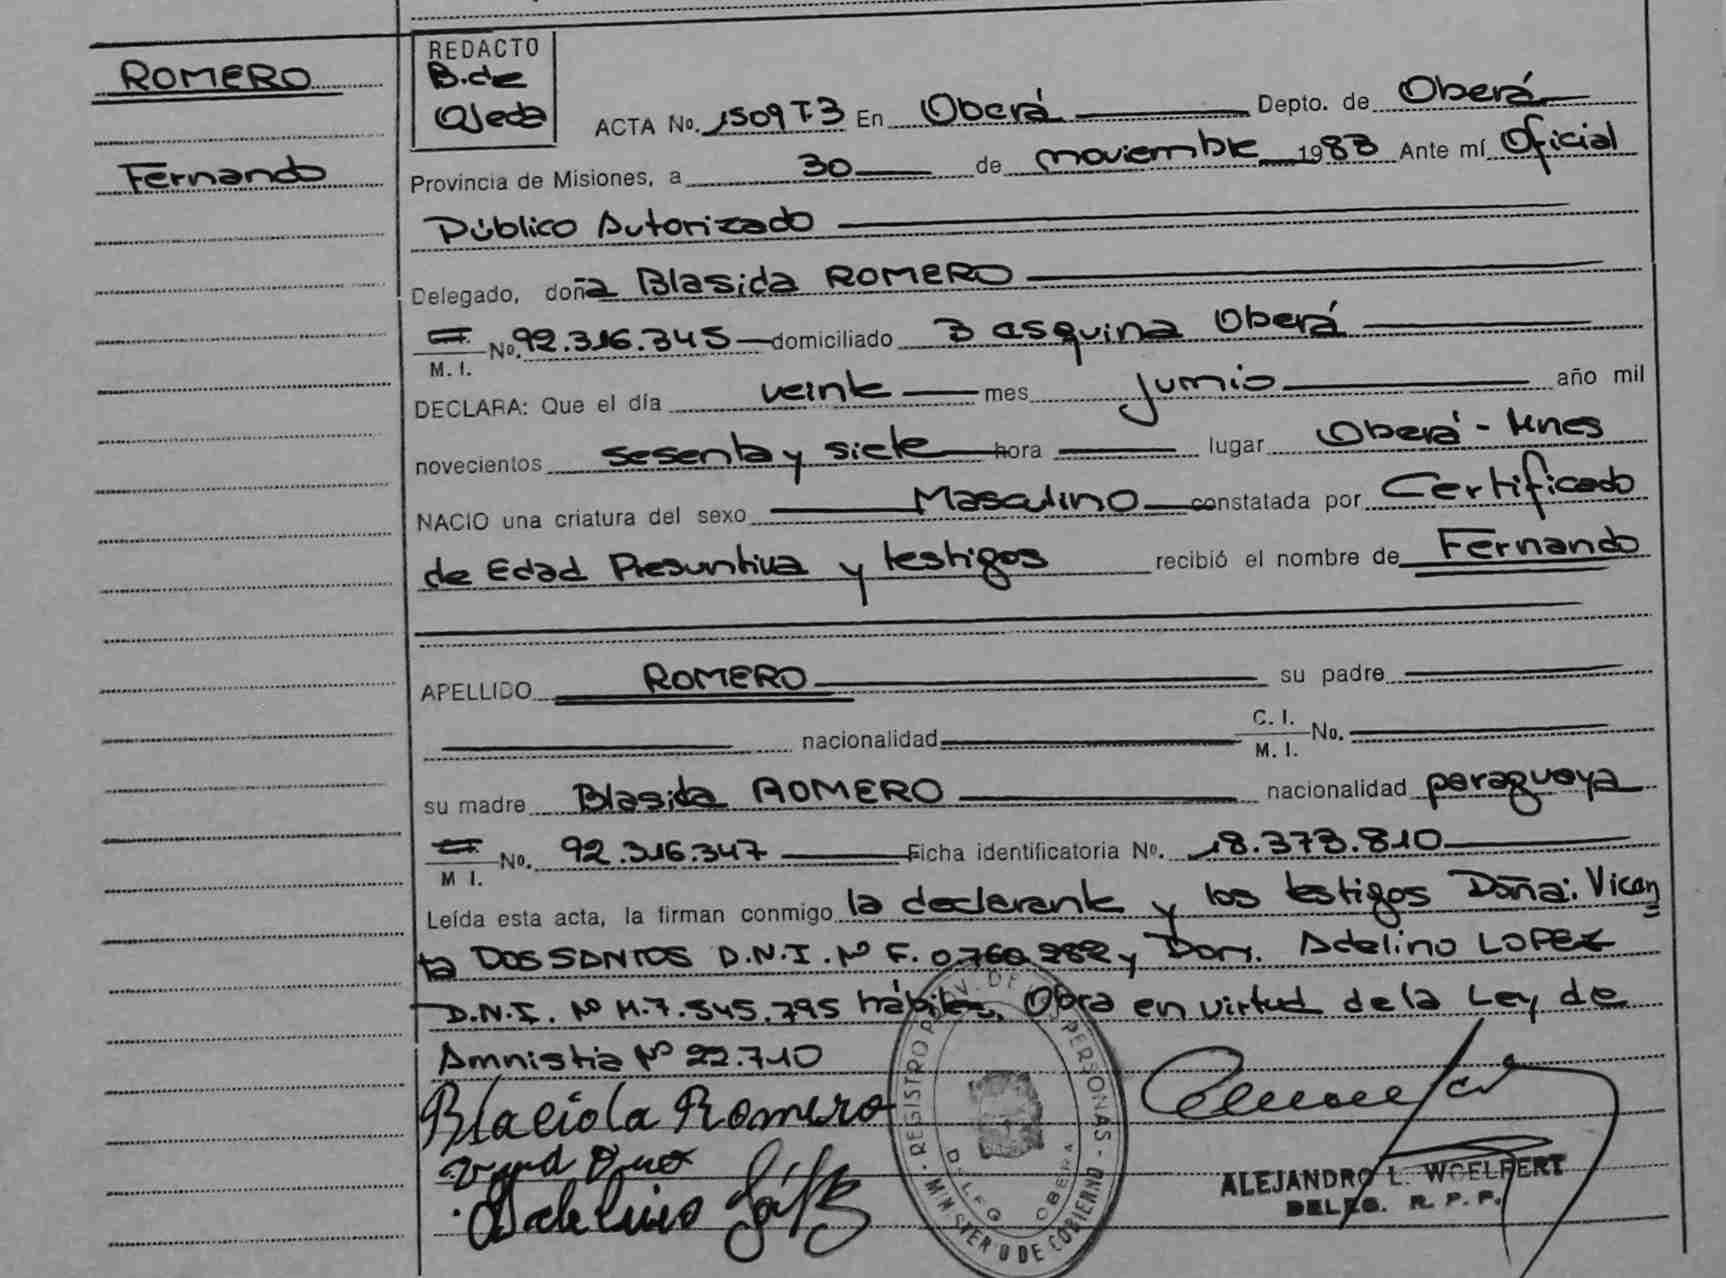 ROMERO
Fernando
REDACTO
B. de
Ojeda
ACTA No. 1509 T3 En Oberá Depto. de Oberá
Provincia de Misiones, a 30 de noviembre 1983 Ante mí Oficial
Público Autorizado
Delegado, doña Blasida ROMERO
M. I. No. 92.316.345 domiciliado 3 esquina Oberá
DECLARA: Que el día veinte mes junio año mil
novecientos sesenta y siete hora lugar Oberá - Mnes
NACIO una criatura del sexo Masculino constatada por Certificado
de Edad Presuntiva y testigos recibió el nombre de Fernando
APELLIDO ROMERO su padre
nacionalidad C. I. M. I. No.
su madre Blasida ROMERO nacionalidad paraguaya
M I. No. 92.316.347 Ficha identificatoria No. 18.373.810
Leída esta acta, la firman conmigo la declarante y los testigos Doña: Vicen
ta DOS SANTOS D.N.I. Nº F. 0.760.282 y Don. Adelino LOPEZ
D.N.I. Nº M. 7.545.795 hábiles. Obra en virtud de la Ley de
Amnistia Nº 22.710
Blacida Romero
Adelino
REGISTRO PROV. DE PERSONAS - MINISTERIO DE GOBIERNO
DELEG. OBERA
ALEJANDRO L. WOELFERT
DELEG. R. P. P.